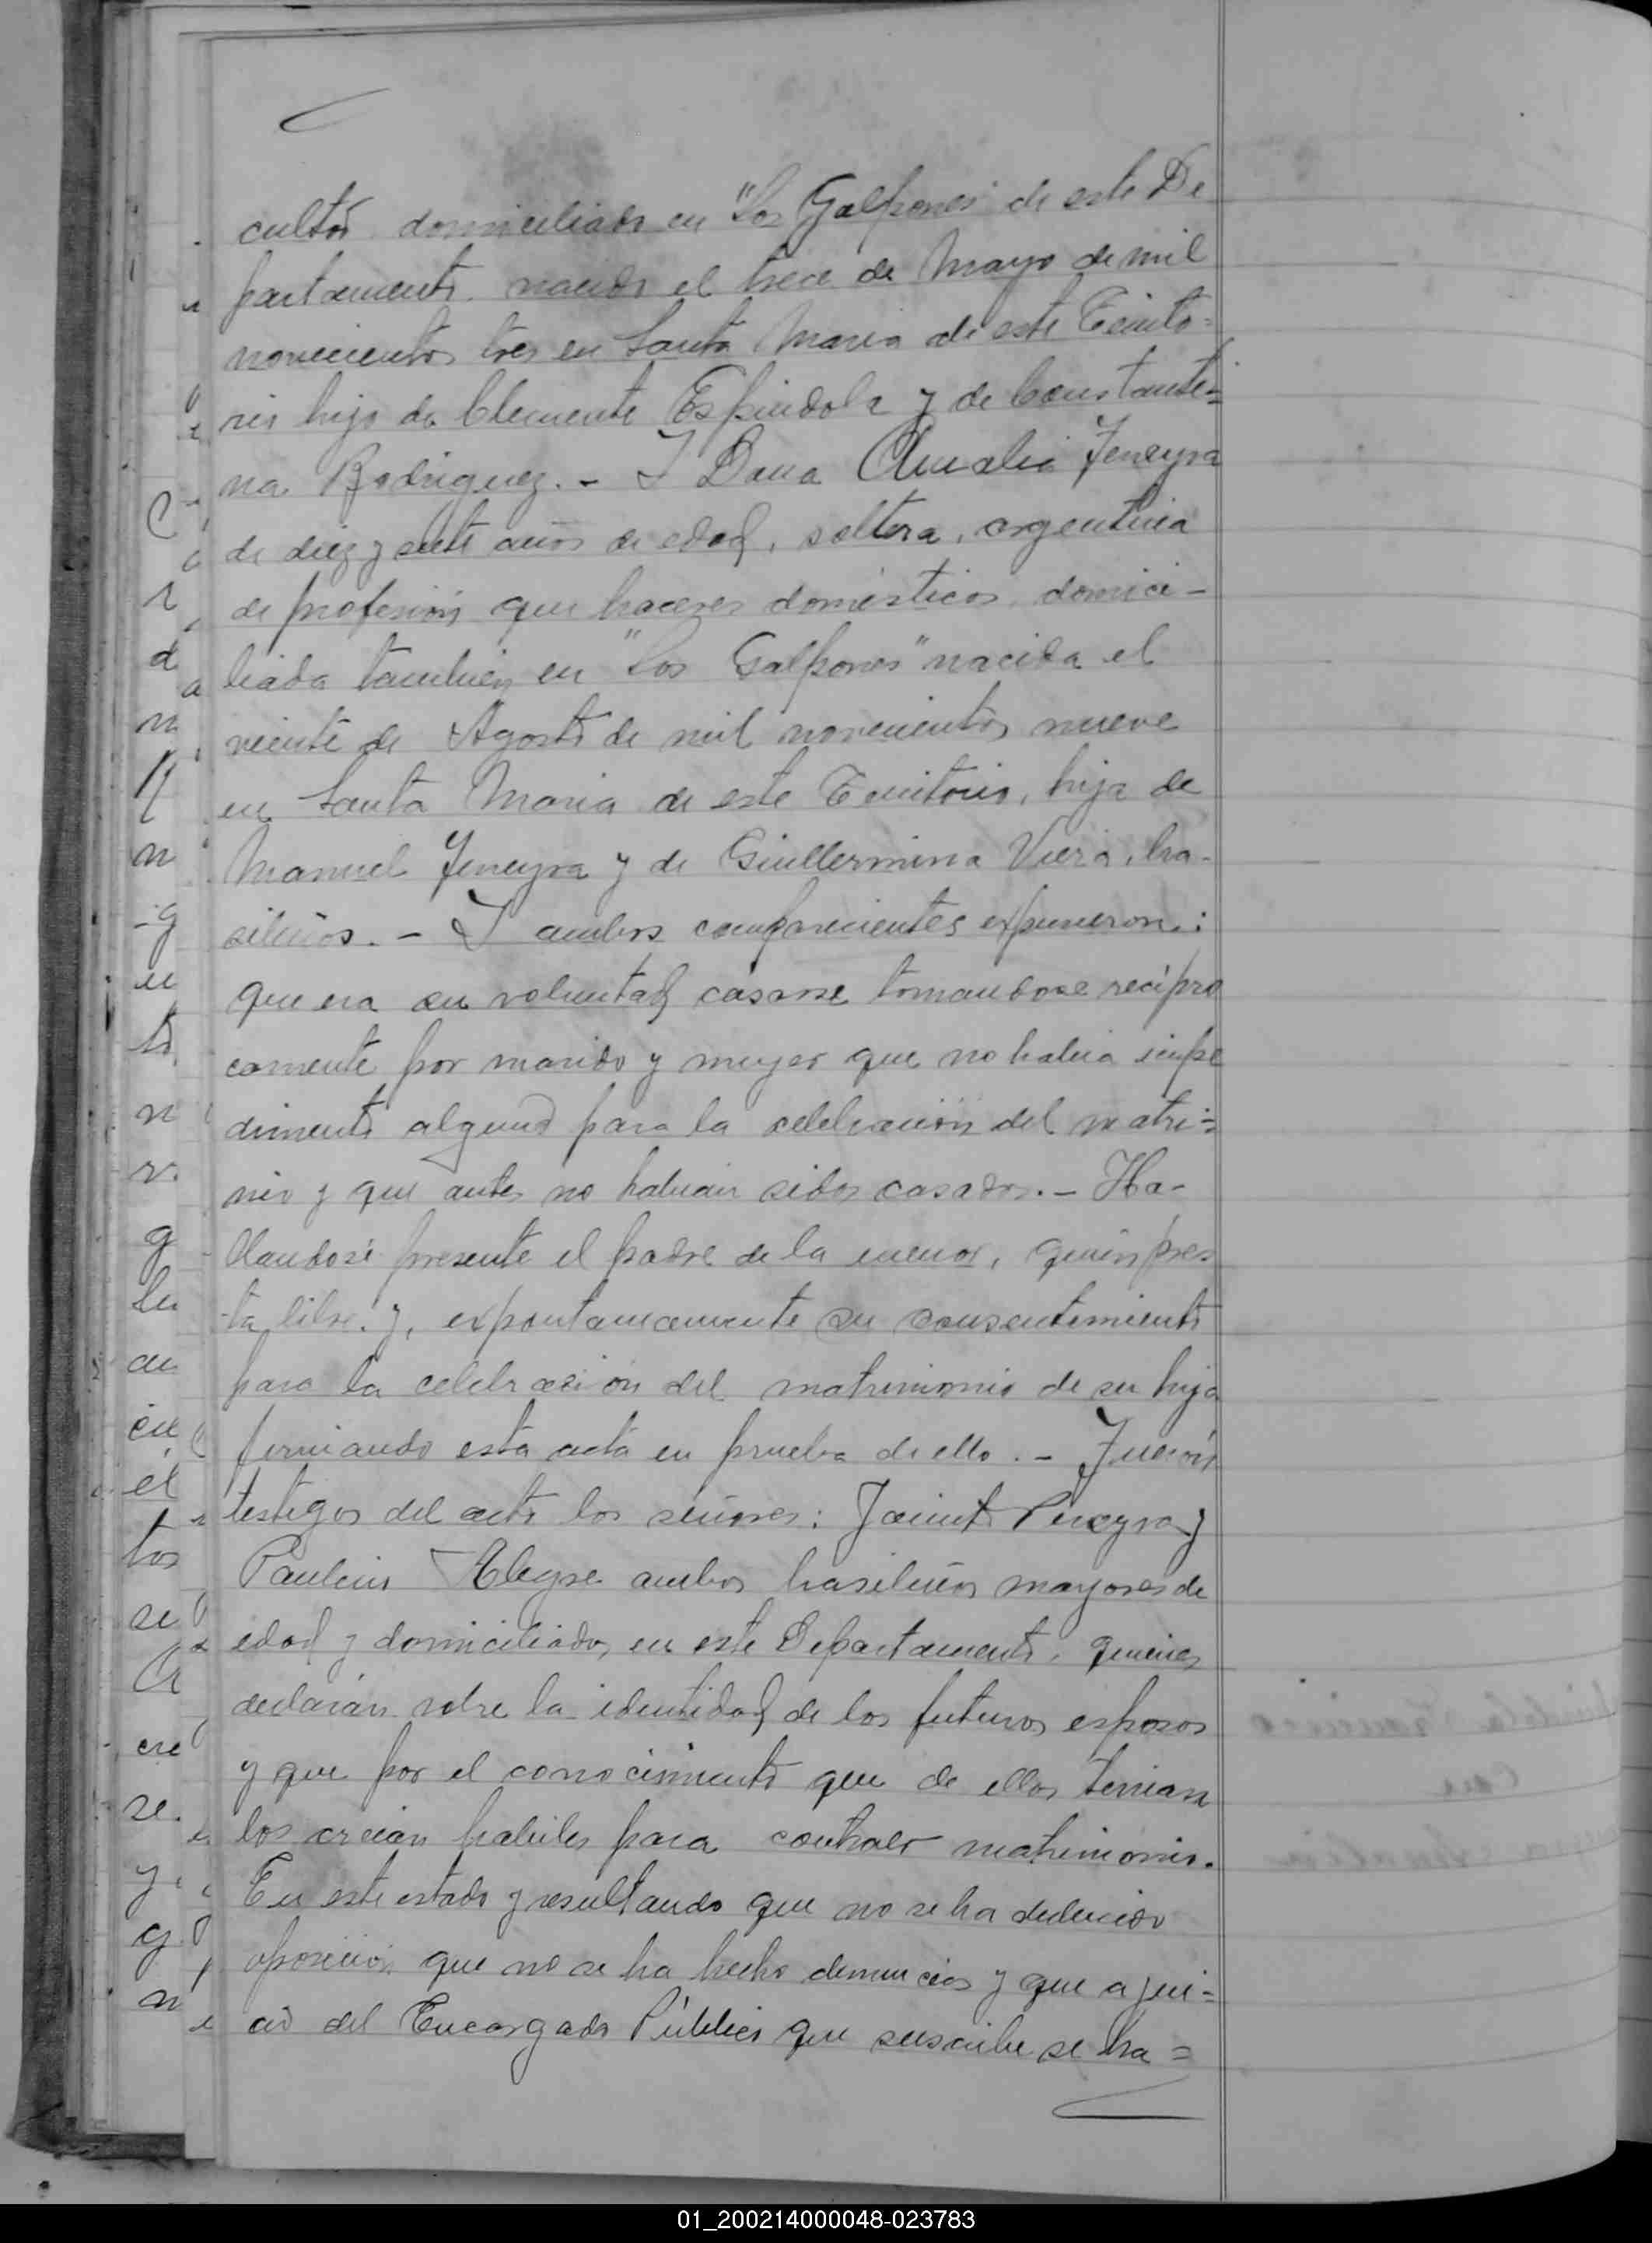 cultor domiciliado en "Los Galpones" de este De
partamento nacido el trece de Mayo de mil
novecientos tres en Santa Maria de este Territo=
rio hijo de Clemente Espindola y de Constanti=
na Rodriguez. - I Dona Amalia Feneyra
de diez y siete años de edad, soltera, argentina
de profesión que haceres domésticos, domici-
liada tambien en "Los Galpones" nacida el
veinte de Agosto de mil novecientos nueve
en Santa Maria de este Territorio, hija de
Manuel Feneyra y de Guillermina Viera, bra-
sileños. - I ambos comparecientes expusieron:
que era su voluntad casarse tomandose recipro
camente por marido y muyer que no habia impe
dimento alguno para la celebracion del matri=
nio y que antes no habian sidos casados. - Ha-
llandose presente el padre de la menor, quien pres
ta libre y, expontaneamente su consentimiento
para la celebración del matrimonio de su hija
firmando esta acta en prueba de ello. - Fueron
testigos del acto los señores: Jacinto Pereyra y
Paulino Alegre ambos brasileños mayores de
edad y domiciliados en este Departamento, quienes
declarán sobre la identidad de los futuros esposos
y que por el conocimiento que de ellos tenian
los creian habiles para contraer matrimonio.
En este estado y resultando que no se ha deducido
oposición que no se ha hecho denuncias y que a jui=
cio del Encargado Público que suscribe se ha=
01_200214000048-023783